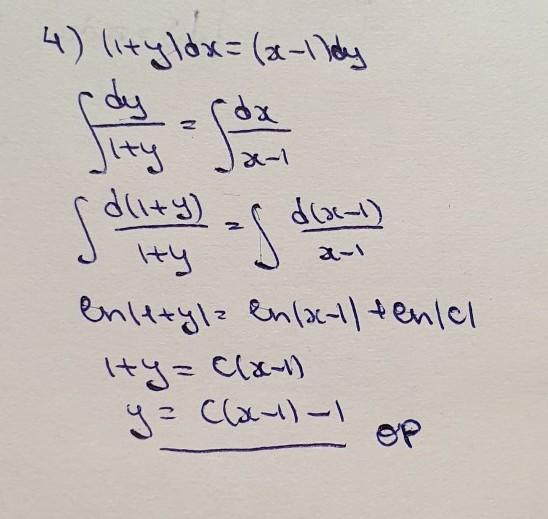 4) (1+y)dx = (x-1)dy
∫ dy/(1+y) = ∫ dx/(x-1)
∫ d(1+y)/(1+y) = ∫ d(x-1)/(x-1)
ln|1+y| = ln|x-1| + ln|C|
1+y = C(x-1)
y = C(x-1) - 1 OP